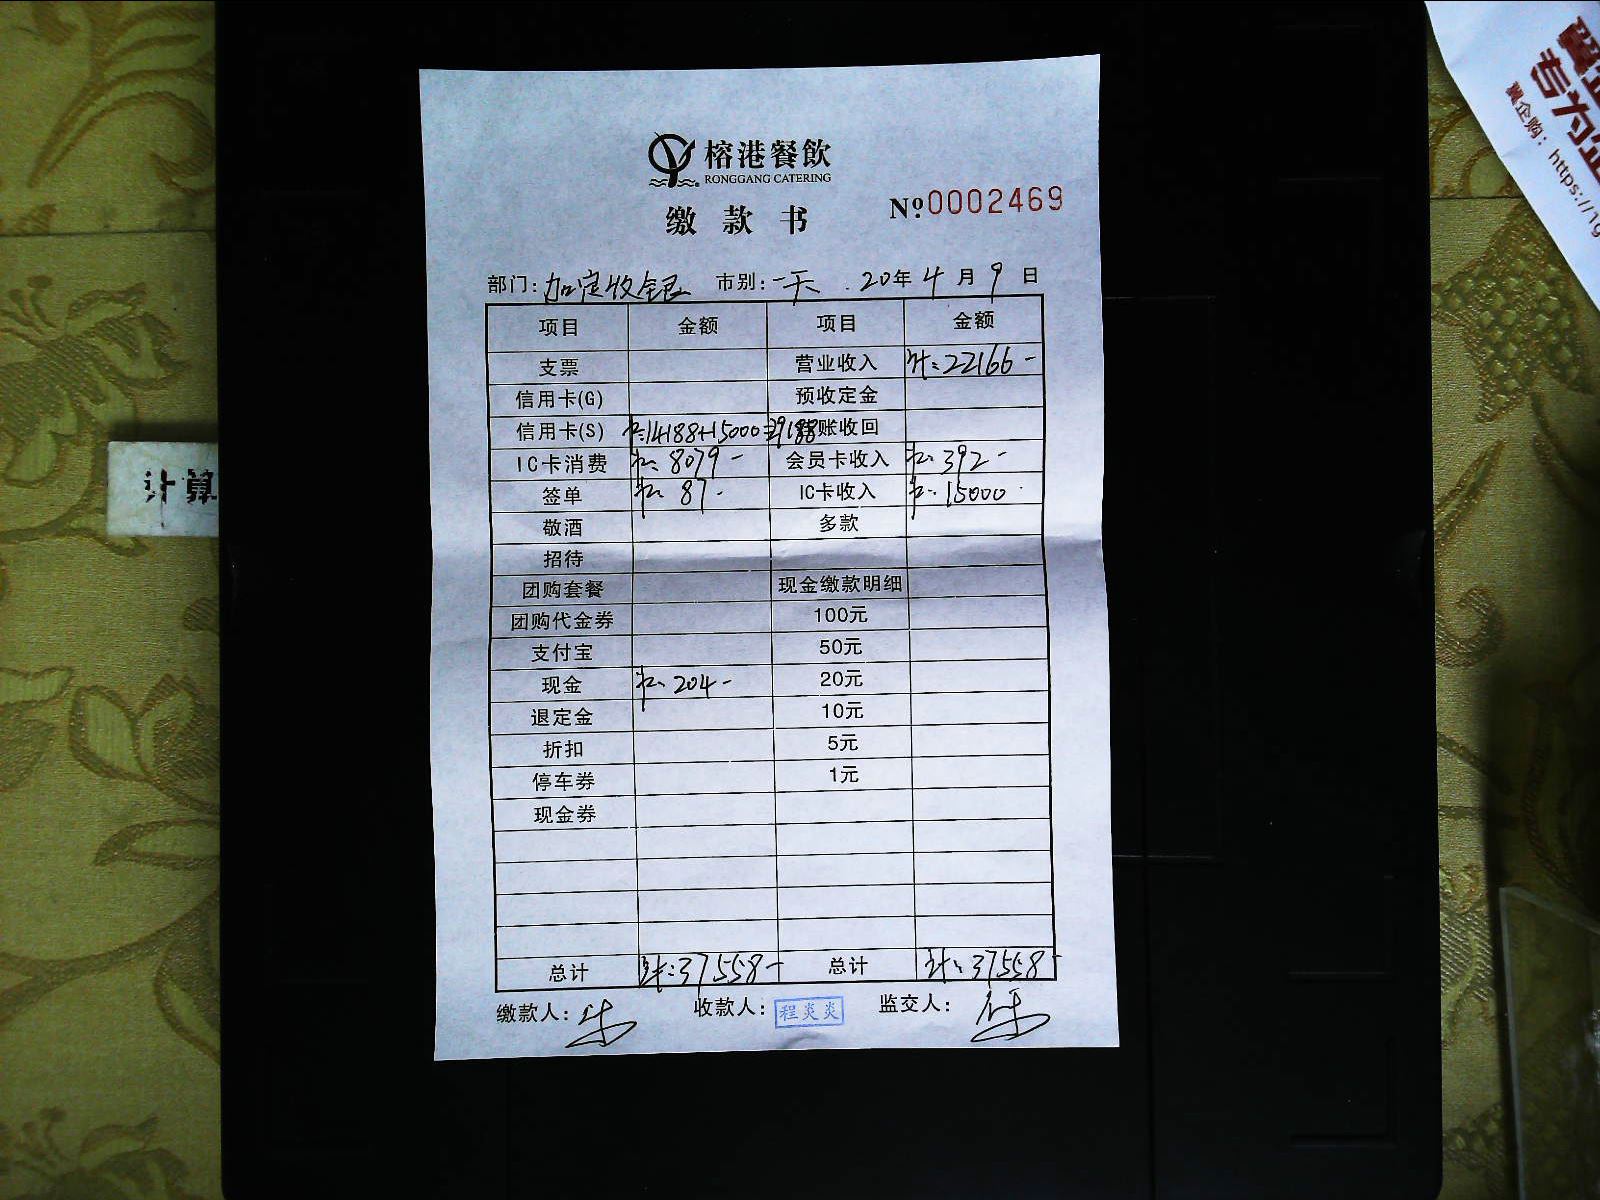 榕港餐飲
RONGGANG CATERING
缴款书
№0002469
部门: 加定收银 市别: 一天 . 20年 4月 9日
项目 金额 项目 金额
支票 营业收入 22166-
信用卡(G) 预收定金
信用卡(S) 14188+15000=29188 账收回
IC卡消费 8079- 会员卡收入 392-
签单 87- IC卡收入 15000
敬酒 多款
招待
团购套餐 现金缴款明细
团购代金券 100元
支付宝 50元
现金 204- 20元
退定金 10元
折扣 5元
停车券 1元
现金券
总计 37558- 总计 37558-
缴款人: 收款人: 程炎炎 监交人:
计算
专为
企购: https://1g